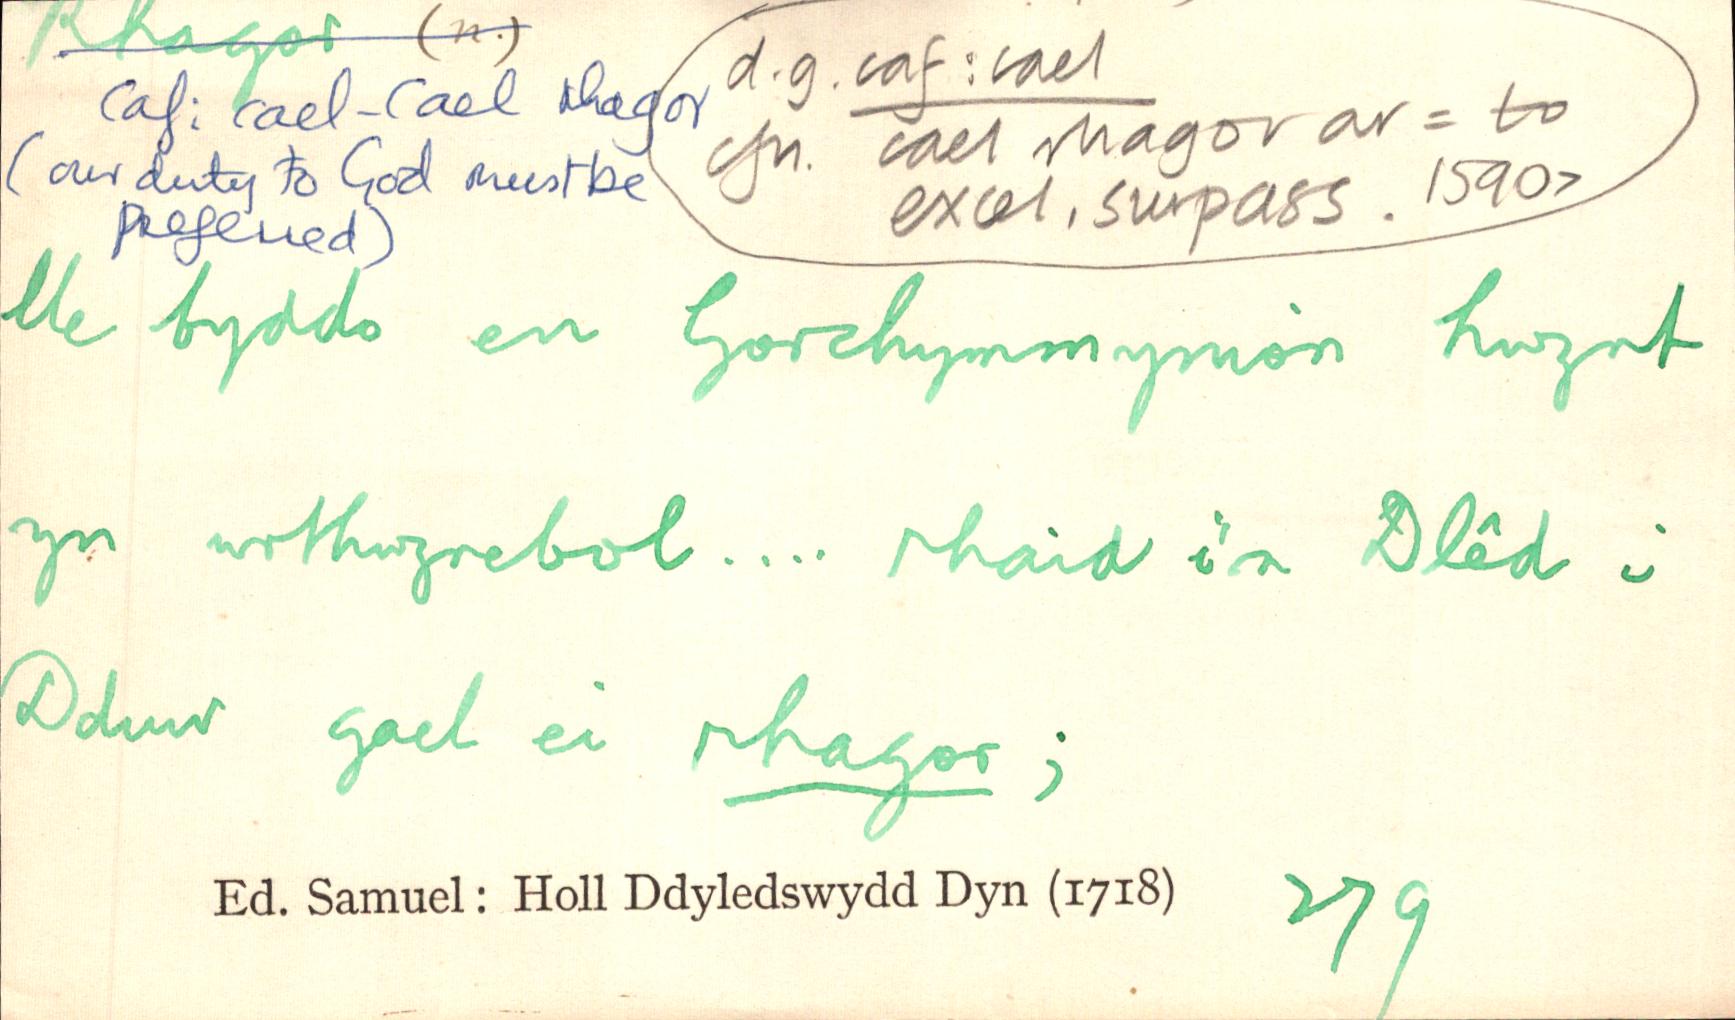 Rhagor (n.)
caf: cael - Cael rhagor
(our duty to God must be
preferred)
d.g. caf: cael
cfn. cael rhagor ar = to
excel, surpass. 1590>
lle byddo eu Gorchymmynion hwynt
yn wrthwynebol.... rhaid i'n Dlêd i
Dduw gael ei rhagor;
Ed. Samuel: Holl Ddyledswydd Dyn (1718) 279